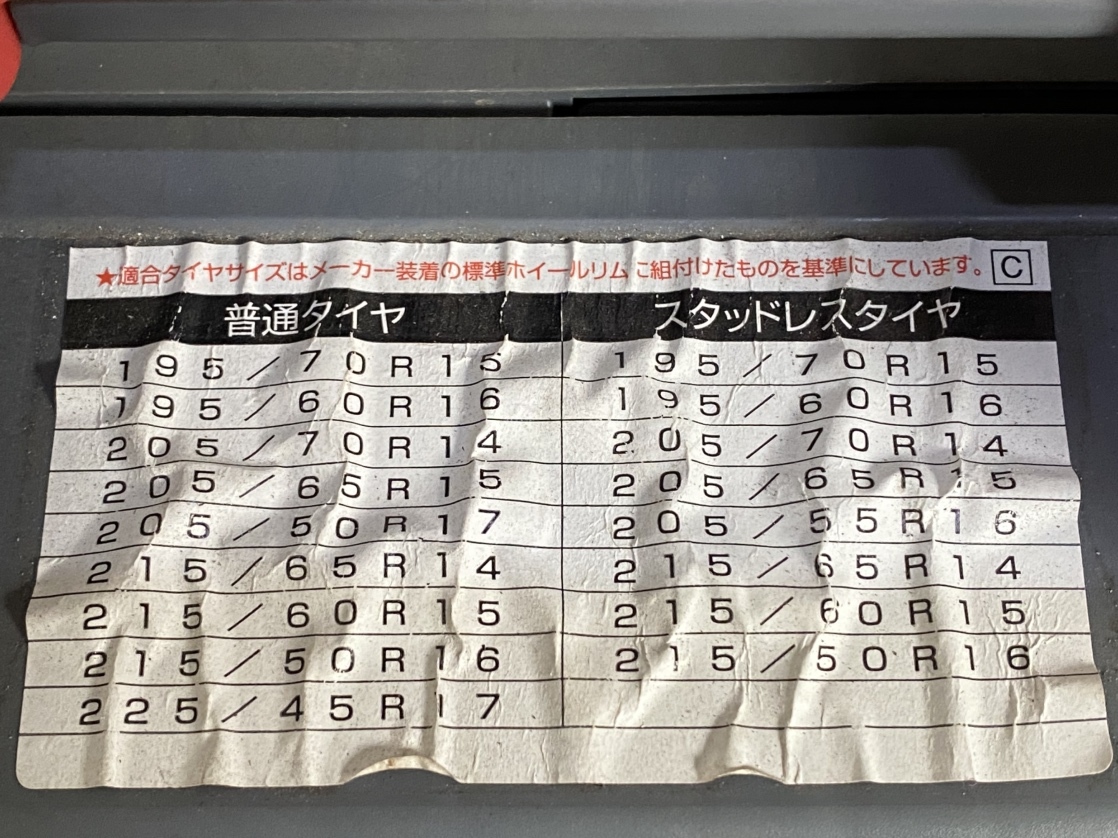 ★適合タイヤサイズはメーカー装着の標準ホイールリムに組付けたものを基準にしています。 C
普通タイヤ スタッドレスタイヤ
195/70R15 195/70R15
195/60R16 195/60R16
205/70R14 205/70R14
205/65R15 205/65R15
205/50R17 205/55R16
215/65R14 215/65R14
215/60R15 215/60R15
215/50R16 215/50R16
225/45R17